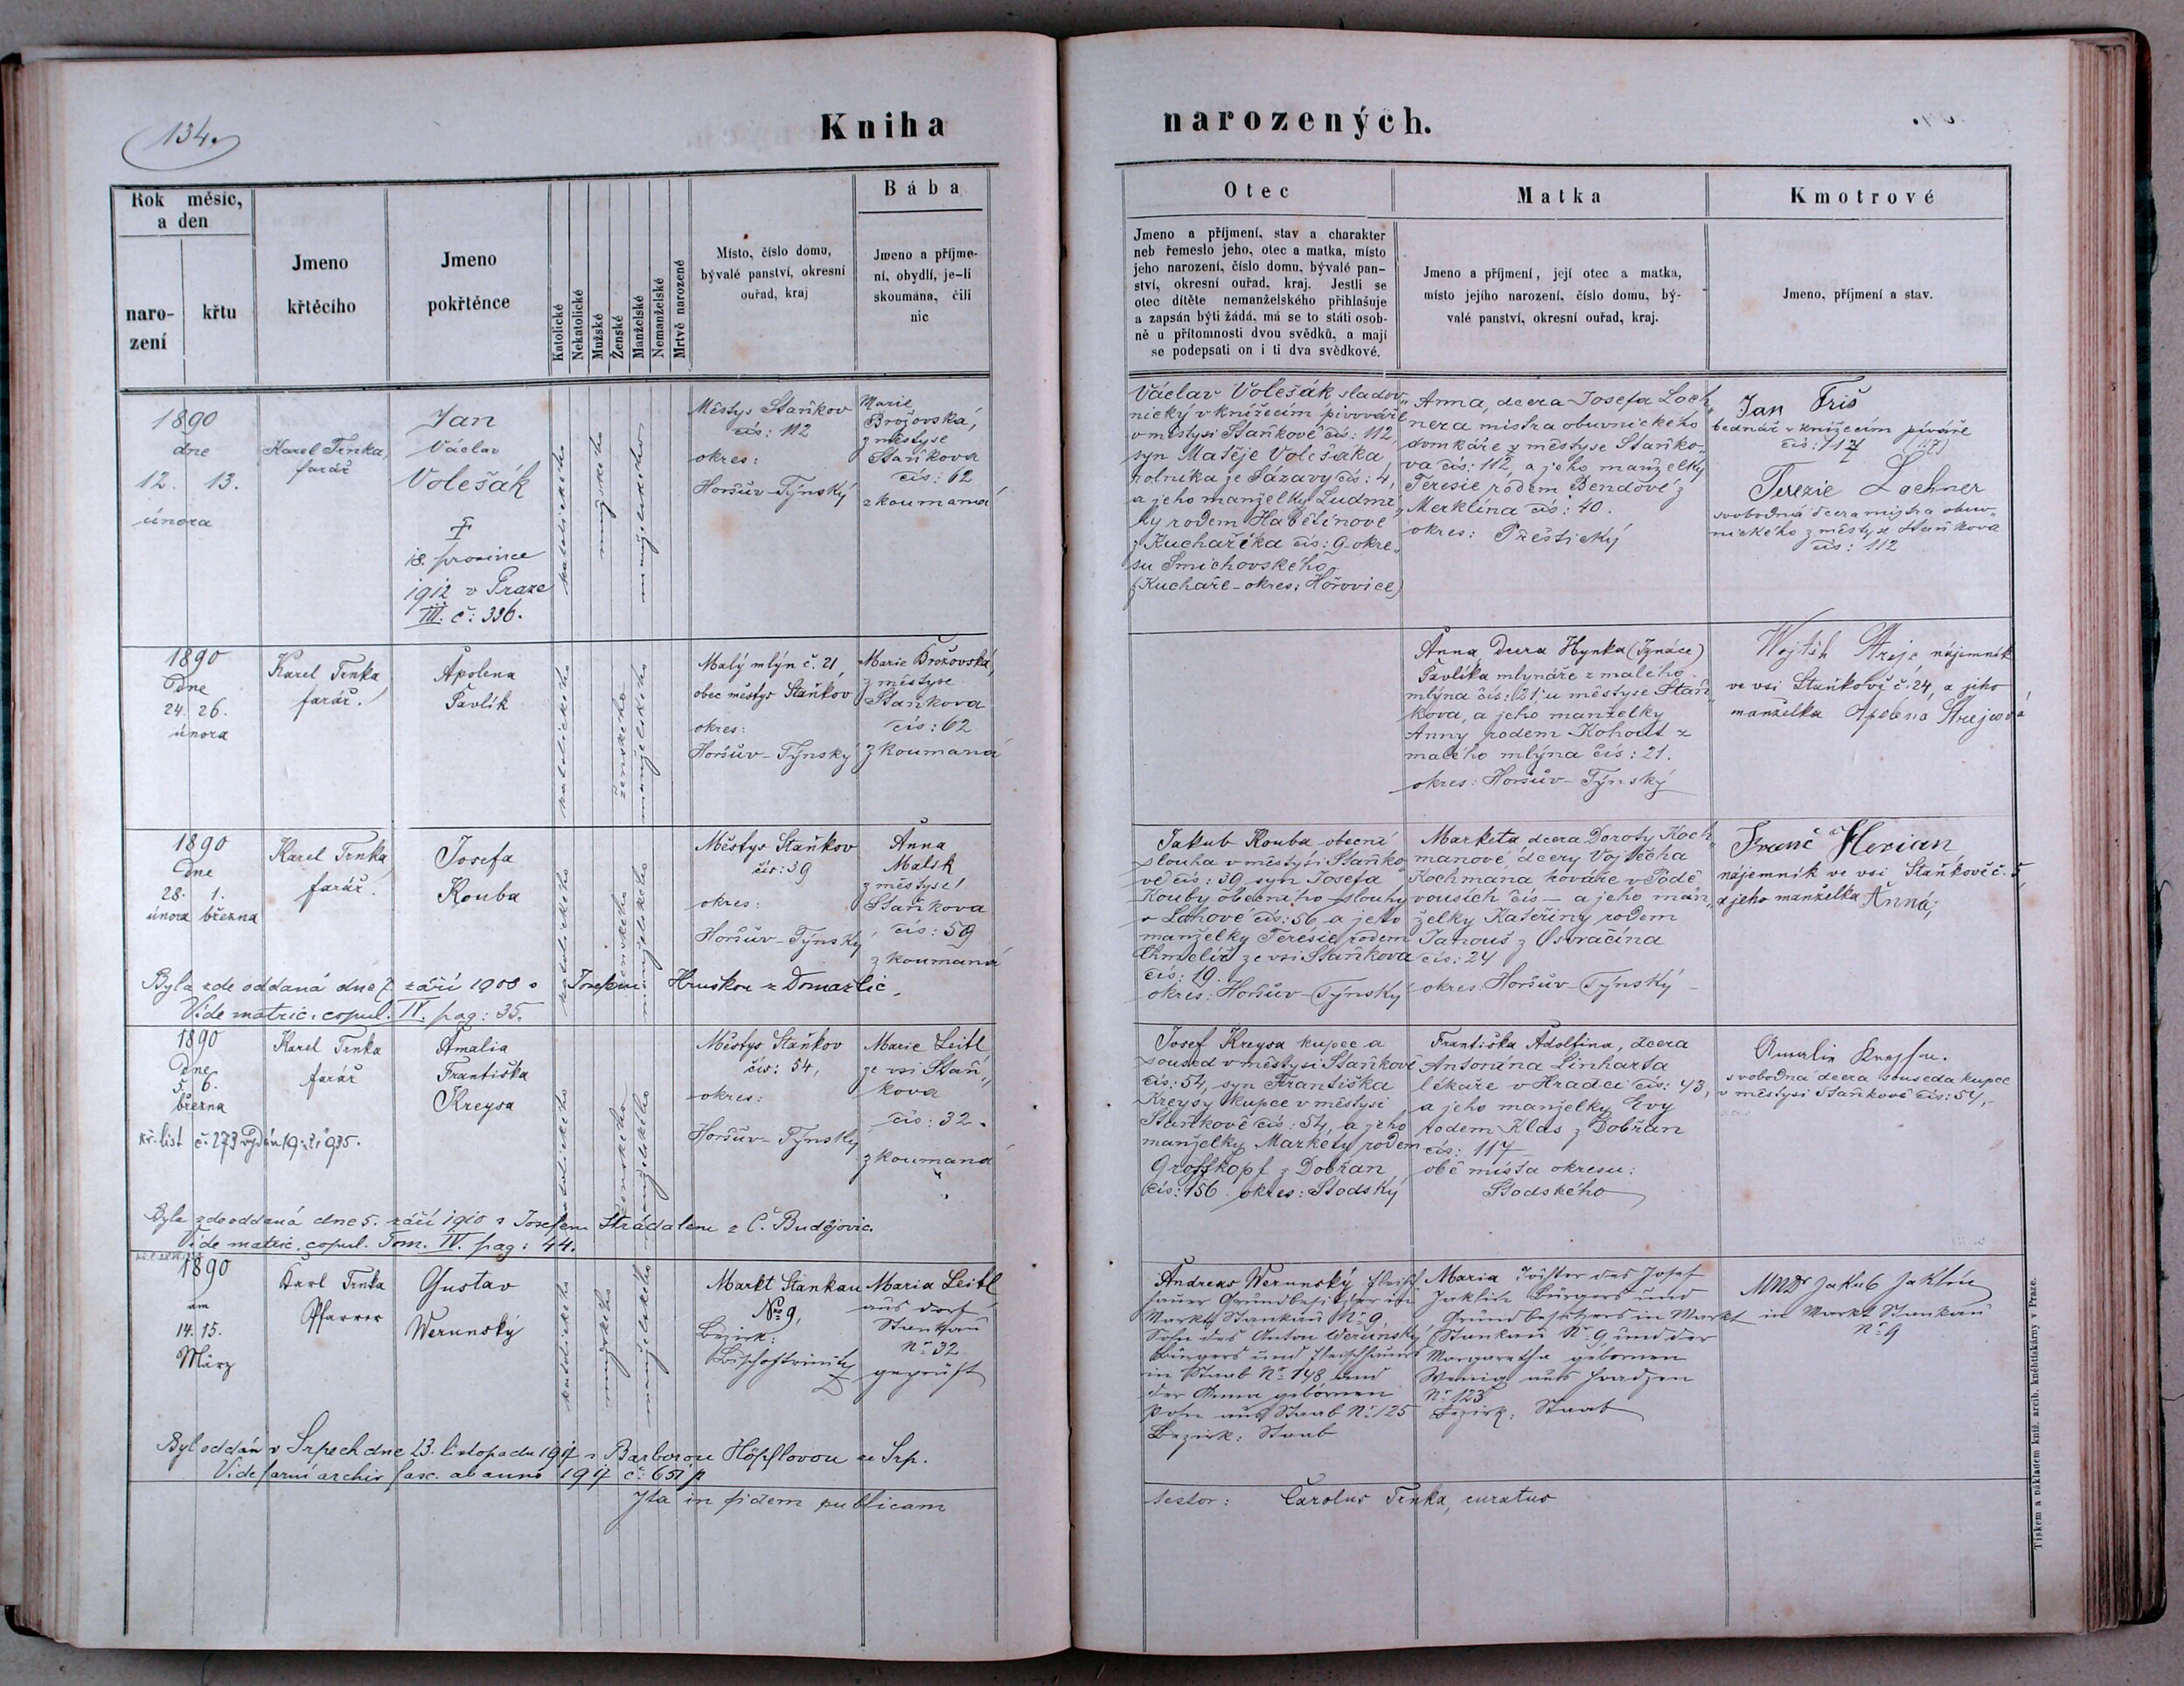 134.
Kniha
narozených.
Rok měsíc,
a den
naro-
zení
křtu
Jmeno
křtěcího
Jmeno
pokřtěnce
Katolické
Nekatolické
Mužské
Ženské
Manželské
Nemanželské
Mrtvě narozené
Místo, číslo domu,
bývalé panství, okresní
ouřad, kraj
Bába
Jmeno a příjme-
ní, obydlí, je-li
skoumána, čili
nic
Otec
Jmeno a příjmení, stav a charakter
neb řemeslo jeho, otec a matka, místo
jeho narození, číslo domu, bývalé pan-
ství, okresní ouřad, kraj. Jestli se
otec dítěte nemanželského přihlašuje
a zapsán býti žádá, má se to státi osob-
ně u přítomnosti dvou svědků, a mají
se podepsati on i ti dva svědkové.
Matka
Jmeno a příjmení, její otec a matka,
místo jejího narození, číslo domu, bý-
valé panství, okresní ouřad, kraj.
Kmotrové
Jmeno, příjmení a stav.
1890
dne
12. 13.
února
Karel Trnka,
farář
Jan
Václav
Volešák
†
18. prosince
1912 v Praze
III. č: 336.
katolického
mužského
manželského
Městys Staňkov
čís: 112
okres:
Horšův-Týnský
Marie
Brožovská,
z městyse
Staňkova
čís: 62
zkoumaná
Václav Volešák sladov„
nický v knížecím pivováře
v městysi Staňkově čís: 112,
syn Matěje Volešáka
rolníka ze Sázavy čís: 4,
a jeho manželky Ludmi
ly rodem Habětínové
z Kuchařika čís: 9 okre„
su Smichovského
(Kuchaře - okres: Hořovice)
Anna, dcera Josefa Loch„
nera mistra obuvnického
domkáře z městyse Staňko„
va čís: 112, a jeho manželky
Teresie rodem Bendové z
Merklína čís: 40.
okres: Přeštický
Jan Friš
bednář v knížecím pivováře
čís: 117 (117)
Terezie Lochner
svobodná dcera mistra obuv„
nického z městyse Staňkova
čís: 112
1890
Dne
24. 26.
února
Karel Trnka,
farář.
Apolena
Pavlík
katolického
ženského
manželského
Malý mlýn č. 21,
obec městys Staňkov
okres:
Horšův-Týnský
Marie Brožovská,
z městyse
Staňkova
čís: 62
zkoumaná
Anna Dcera Hynka (Ignáce)
Pavlíka mlynáře z malého
mlýna čís: 21 u městyse Staň„
kova, a jeho manželky
Anny rodem Kohout z
malého mlýna čís: 21.
okres: Horšův-Týnský
Wojtěch Strejc nájemník
ve vsi Staňkově č. 24, a jeho
manželka Apolena Strejcová
1890
Dne
28. 1.
února března
Karel Trnka,
farář.
Josefa
Kouba
katolického
ženského
manželského
Městys Staňkov
čís: 39
okres:
Horšův-Týnský
Anna
Malik
z městyse
Staňkova
čís: 59
zkoumaná
Jakub Kouba obecní
slouha v městysi Staňko
vě čís: 39 syn Josefa
Kouby obecního slouhy
v Lohové čís: 56 a jeho
manželky Terésie rodem
Chmelíř ze vsi Staňkova
čís: 19.
okres: Horšův-Týnský
Marketa, dcera Doroty Koch„
manové, dcery Vojtěcha
Kochmana kováře v Podě
vousích čís — a jeho man„
želky Kateřiny rodem
Janouš z Osvračína
čís: 24
okres: Horšův-Týnský
Franc Florian,
nájemník ve vsi Staňkově č. 5,
a jeho manželka Anna,
Byla zde oddaná dne 7. září 1908 s Josefem Hruškou z Domažlic.
Vide matric. copul. IV. pag: 35.
1890
Dne
5. 6.
března
Karel Trnka
farář
Amalia
Františka
Kreysa
kř. list č. 273 vydán 19
katolického
ženského
manželského
Městys Staňkov
čís: 54,
okres:
Horšův-Týnský
Marie Leitl
ze vsi Staň„
kova
čís: 32.
zkoumaná
Josef Kreysa kupec a
soused v městysi Staňkově
čís: 54, syn Františka
Kreysy kupce v městysi
Staňkově čís: 54, a jeho
manželky Markety rodem
Grosskopf z Dobřan
čís: 156 okres: Stodský
Františka Adolfina, dcera
Antonína Linharta
lékaře v Hradci čís: 43,
a jeho manželky Evy
rodem Klas z Dobřan
čís: 117
obě místa okresu:
Stodského
Amalie Kreysa.
svobodná dcera souseda kupce
v městysi Staňkově čís: 54,
Byla zde oddaná dne 5. září 1910 s Josefem Strádalem z Č. Budějovic.
Vide matric. copul. Tom. IV. pag: 44.
1890
am
14. 15.
März
Karl Trnka
Pfarrer
Gustav
Werunský
katolického
mužského
manželského
Markt Stankau
No 9,
Bezirk:
Bischofteinitz
Maria Leitl
aus Dorf
Stankau
No 32
geprüft
Andreas Werunský, Fleisch
hauer Grundbesitzer in
Markt Stankau No 9,
Sohn des Anton Werunský
Bürgers und Fleischhauers
in Staab No 148 und
der Anna gebornen
aus Staab No 125
Bezirk: Staab
Maria Tochter des Josef
Jaklin Bürgers und
Grundbesitzers in Markt
Stankau No 9 und der
Margaretha gebornen
Wenig aus Hradzen
No 123
Bezirk: Staab
MUDr Jakub Jaklin
in Markt Stankau
No 9
Byl oddán v Srpech dne 23. listopadu 1917 s Barborou Höpflovou ze Srp.
Vide farní archiv fasc. ab anno 1917 č: 651/p
Ita in fidem publicam
testor: Carolus Trnka, curatus
Tiskem a nákladem kníž. arcib. knihtiskárny v Praze.